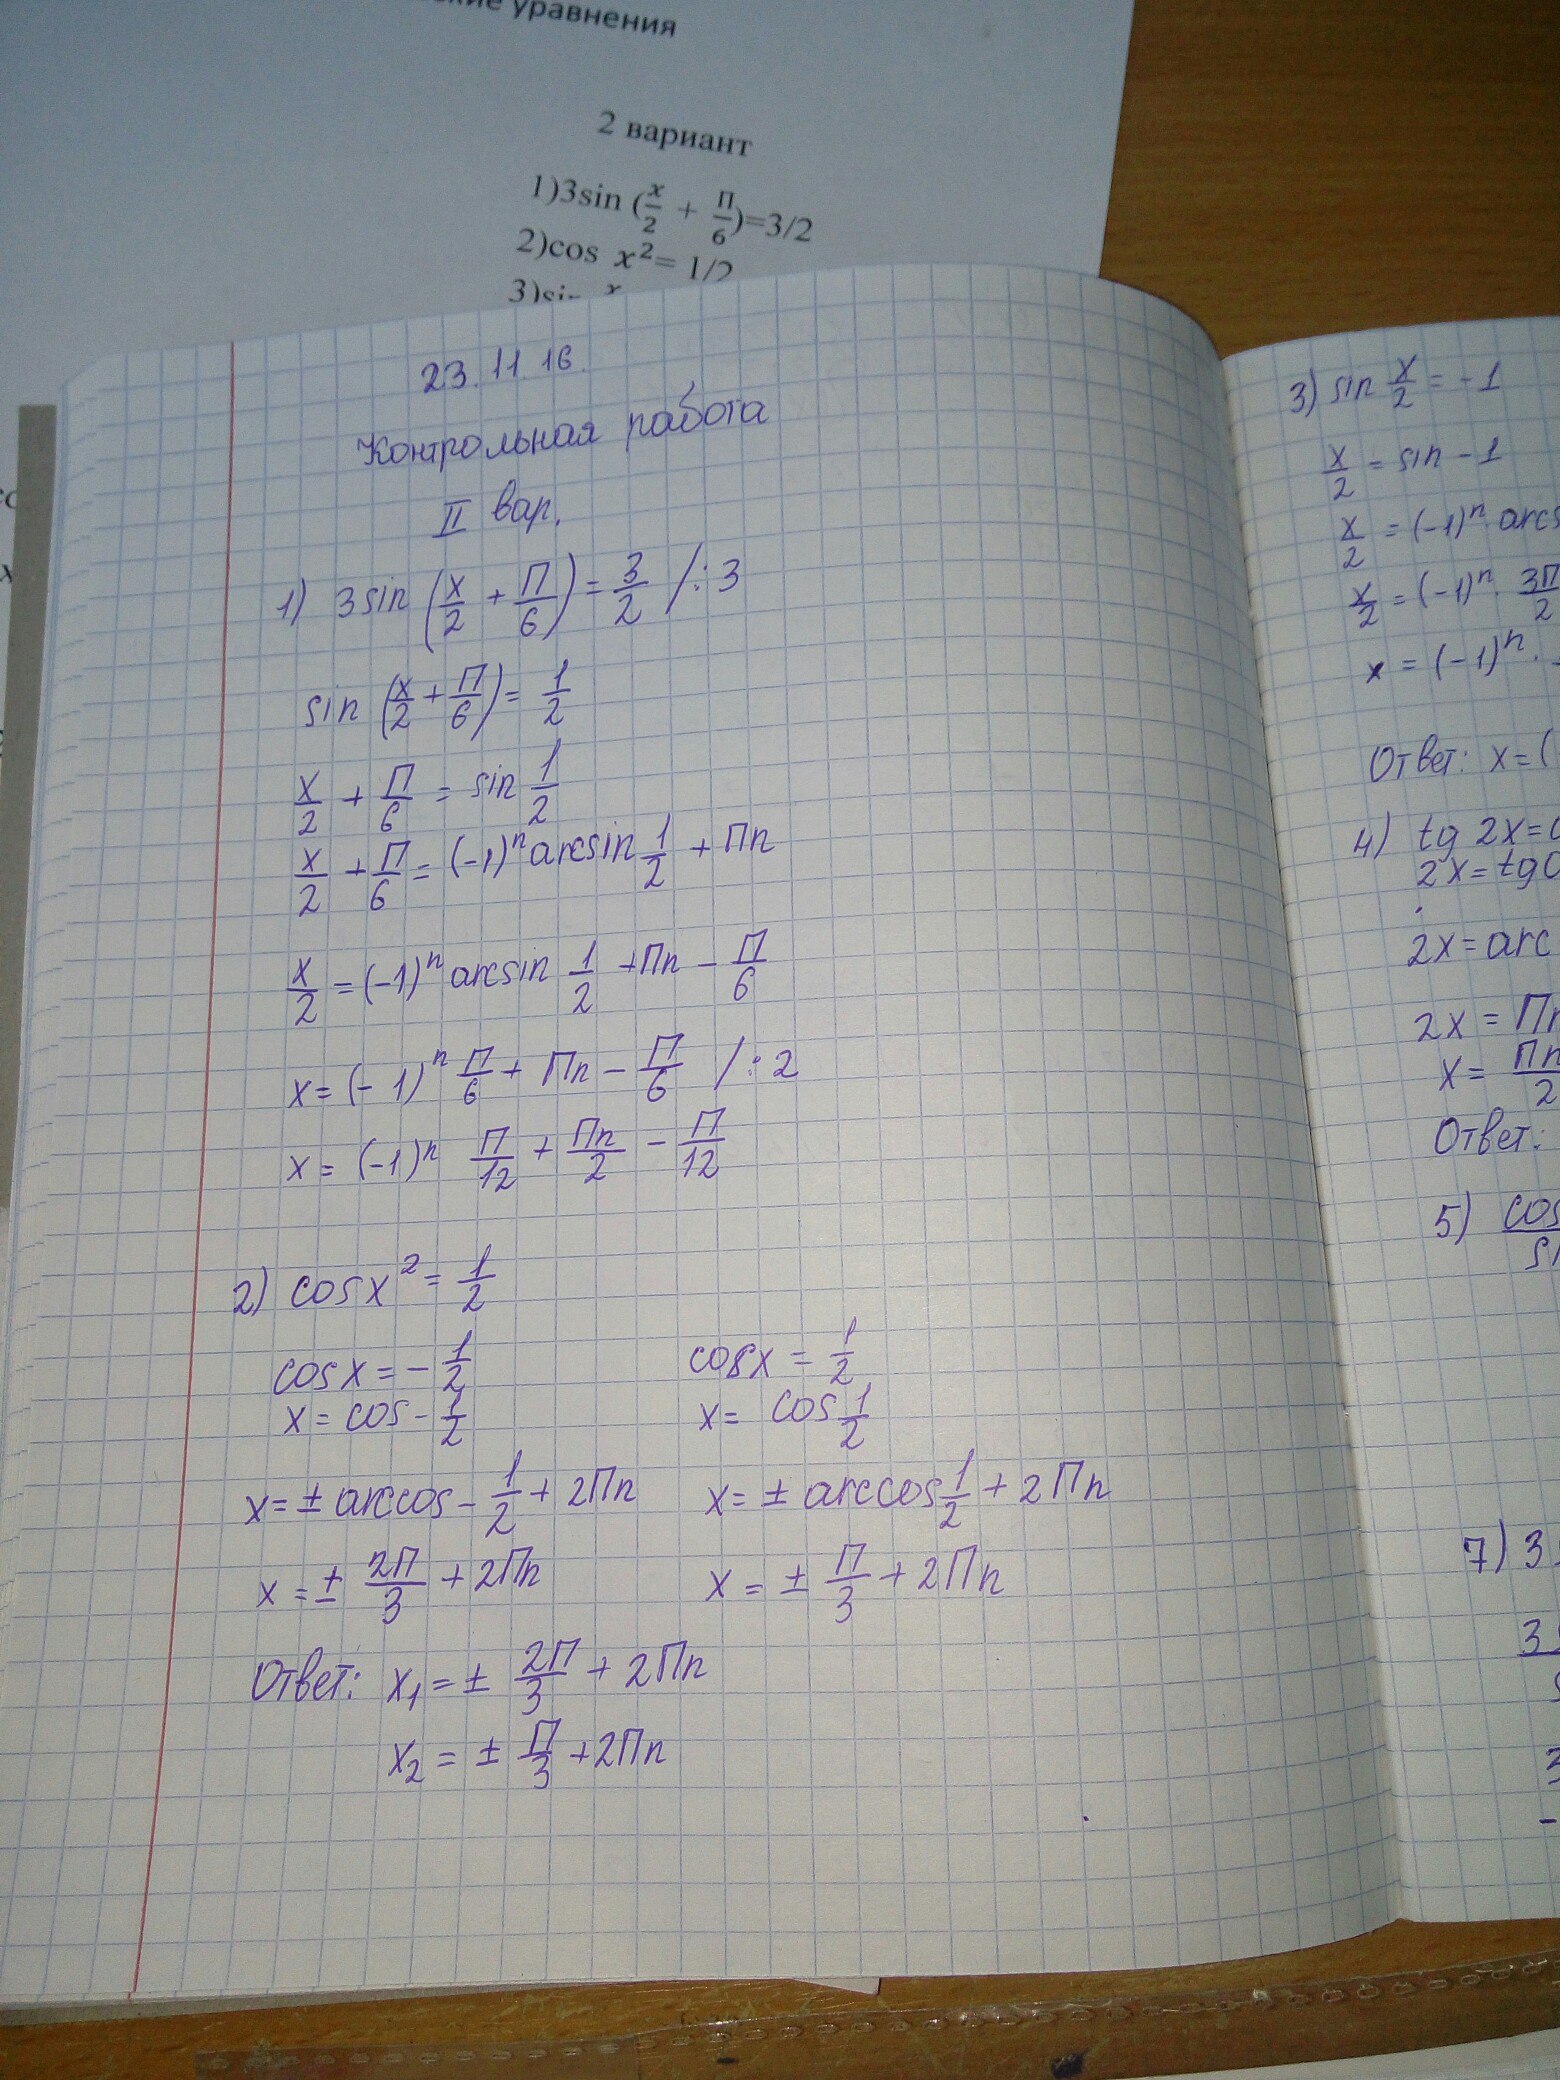 уравнения
2 вариант
1)3sin (x/2 + П/6)=3/2
2)cos x²= 1/2
3)sin x
23.11.16.
Контрольная работа
II вар.
1) 3sin (x/2 + П/6) = 3/2 /:3
sin (x/2 + П/6) = 1/2
x/2 + П/6 = sin 1/2
x/2 + П/6 = (-1)ⁿ arcsin 1/2 + Пn
x/2 = (-1)ⁿ arcsin 1/2 + Пn - П/6
x = (-1)ⁿ П/6 + Пn - П/6 /:2
x = (-1)ⁿ П/12 + Пn/2 - П/12
2) cosx² = 1/2
cosx = - 1/2 cosx = 1/2
x = cos - 1/2 x = cos 1/2
x = ± arccos - 1/2 + 2Пn x = ± arccos 1/2 + 2Пn
x = ± 2П/3 + 2Пn x = ± П/3 + 2Пn
Ответ: x₁ = ± 2П/3 + 2Пn
x₂ = ± П/3 + 2Пn
3) sin x/2 = -1
x/2 = sin -1
x/2 = (-1)ⁿ arcs
x/2 = (-1)ⁿ · 3П/2
x = (-1)ⁿ ·
Ответ: x = (
4) tg 2x =
2x = tg
2x = arc
2x = Пn
x = Пn/2
Ответ:
5) cos
7) 3
3
3
-